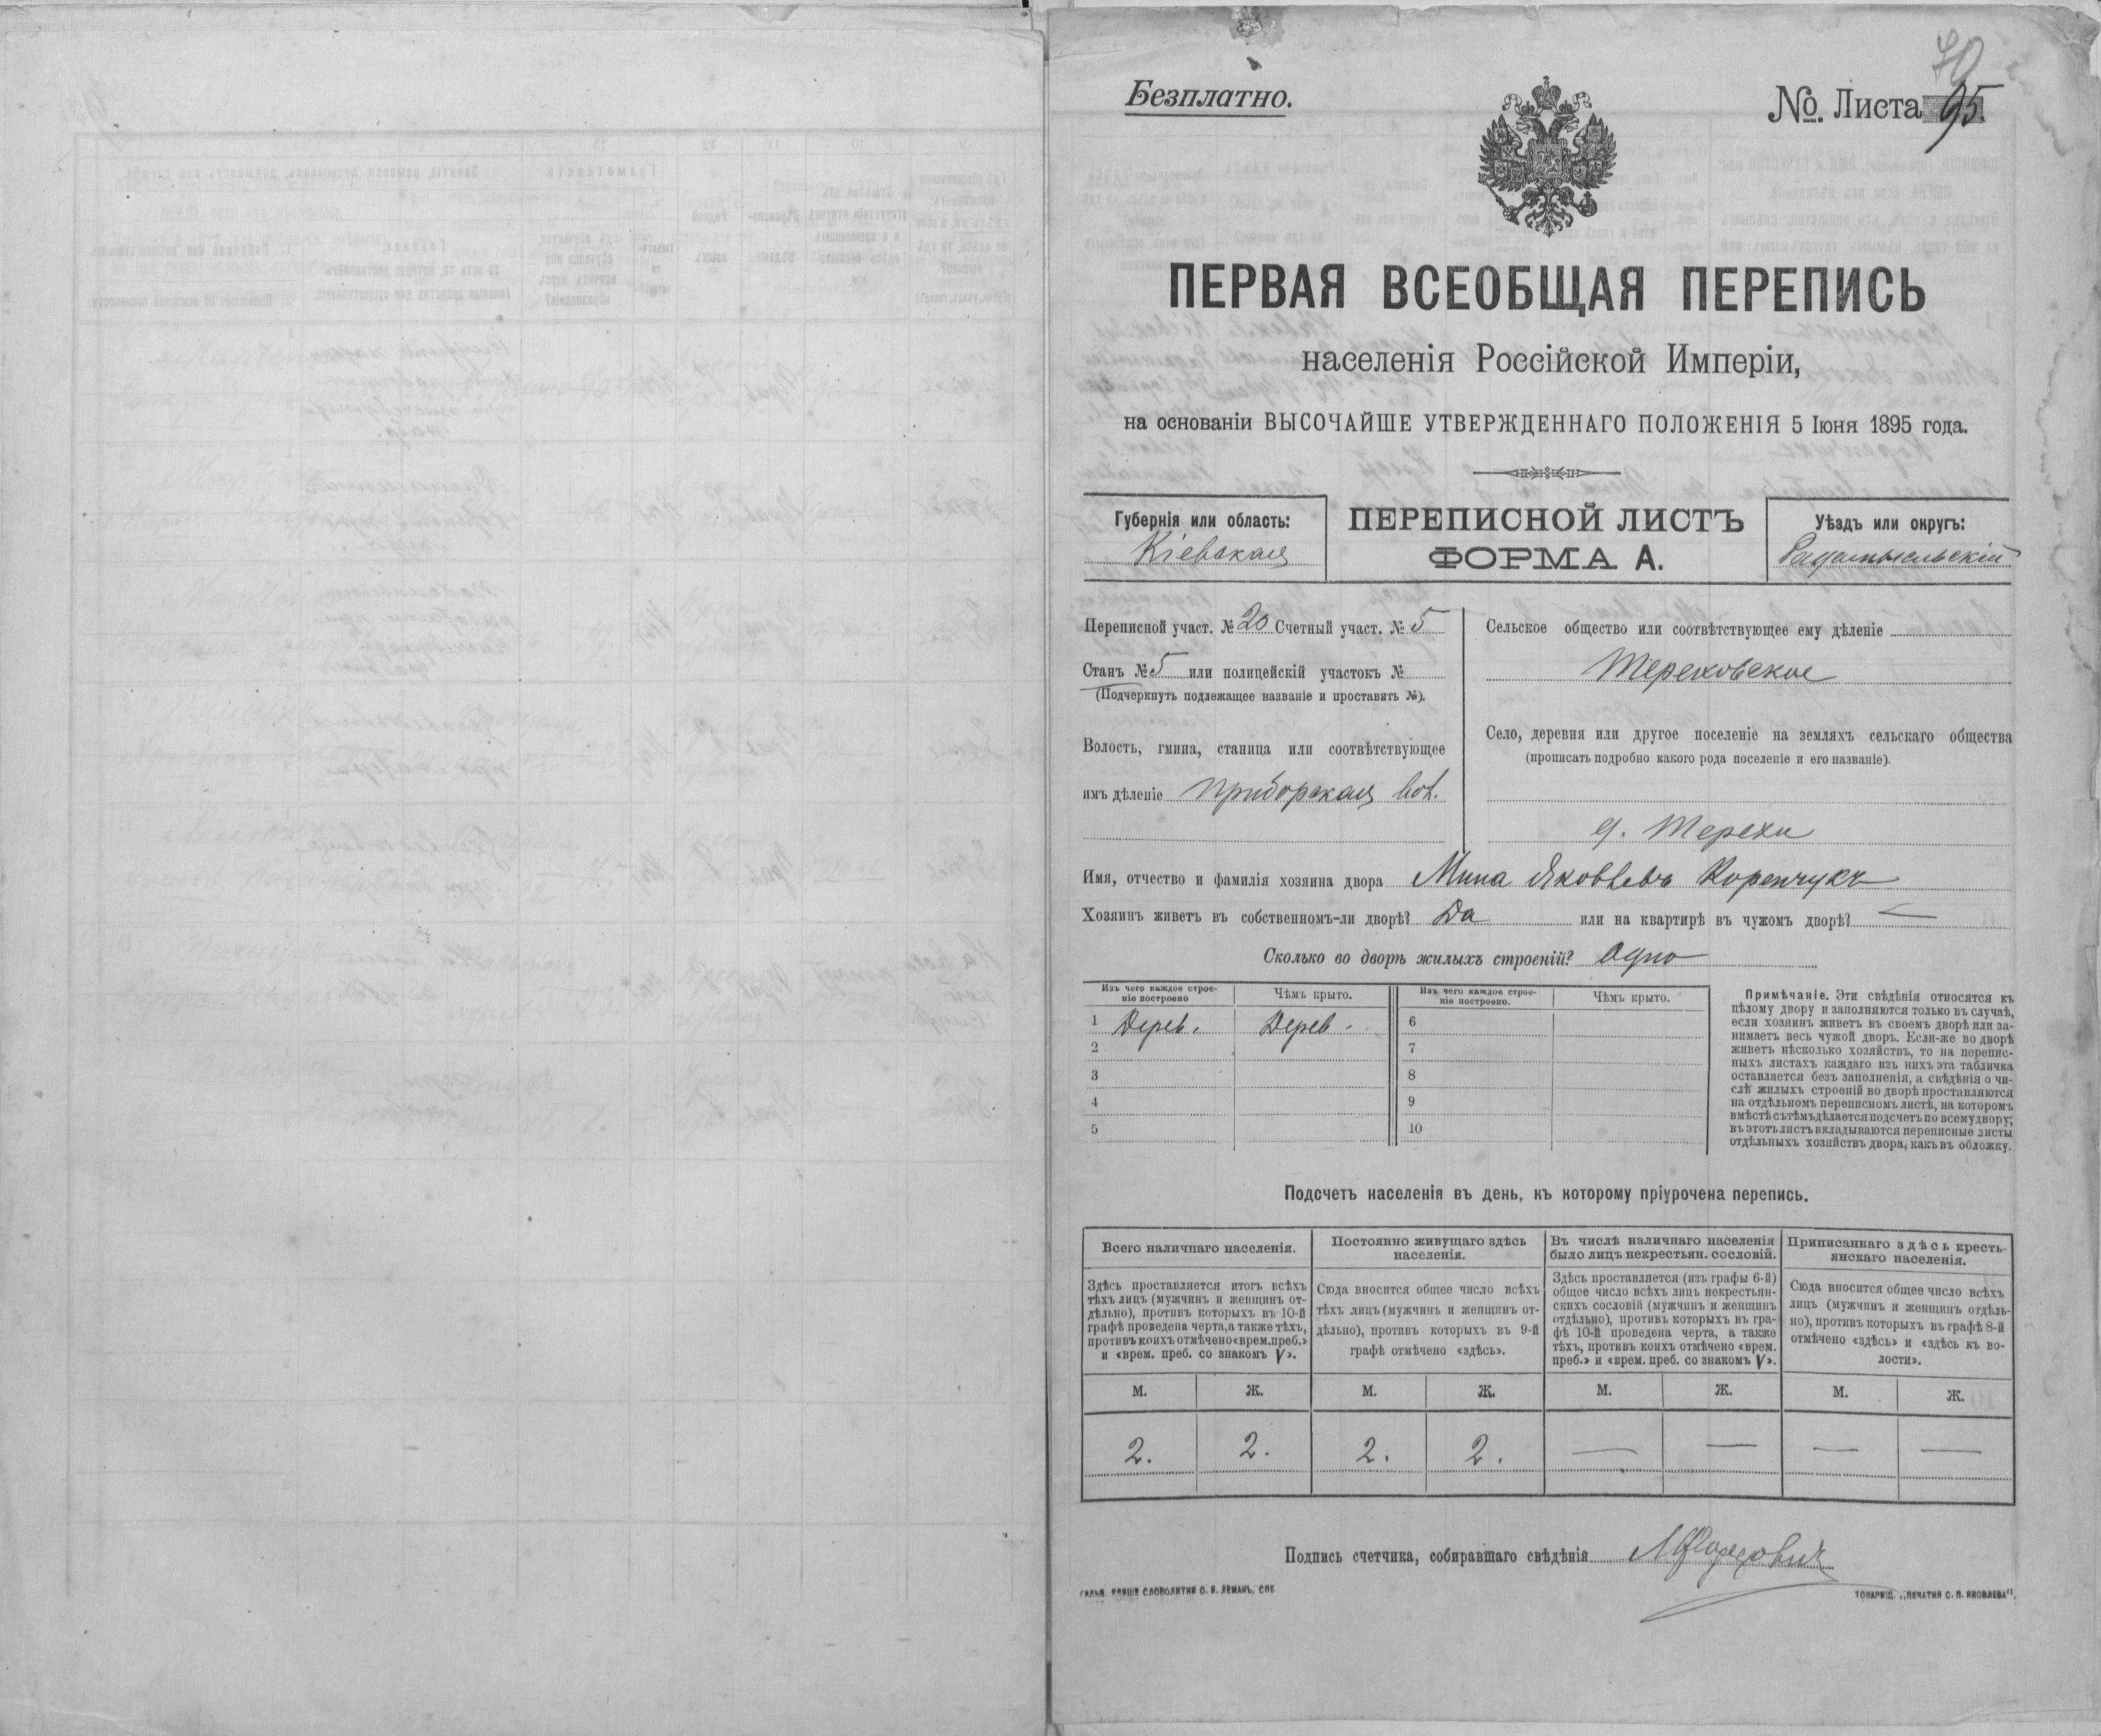 70
Безплатно.
№. Листа 95.
ПЕРВАЯ ВСЕОБЩАЯ ПЕРЕПИСЬ
населенія Россійской Имперіи,
на основаніи ВЫСОЧАЙШЕ УТВЕРЖДЕННАГО ПОЛОЖЕНІЯ 5 Іюня 1895 года.
Губернія или область:
Кіевская
ПЕРЕПИСНОЙ ЛИСТЪ
ФОРМА А.
Уѣздъ или округъ:
Радомысльскій
Переписной участ. № 20 Счетный участ. № 5
Станъ № 5 или полицейскій участокъ №
(Подчеркнуть подлежащее названіе и проставить №).
Волость, гмина, станица или соотвѣтствующее
имъ дѣленіе Приборская вол.
Сельское общество или соотвѣтствующее ему дѣленіе
Тереховское
Село, деревня или другое поселеніе на земляхъ сельскаго общества
(прописать подробно какого рода поселеніе и его названіе).
д. Терехи
Имя, отчество и фамилія хозяина двора Мина Яковлевъ Коренчукъ
Хозяинъ живетъ въ собственномъ-ли дворѣ? Да или на квартирѣ въ чужомъ дворѣ? —
Сколько во дворѣ жилыхъ строеній? Одно
Изъ чего каждое строе-
ніе построено
Чѣмъ крыто.
Изъ чего каждое строе-
ніе построено.
Чѣмъ крыто.
1 Дерев. Дерев. 6
2 7
3 8
4 9
5 10
Примѣчаніе. Эти свѣдѣнія относятся къ
цѣлому двору и заполняются только въ случаѣ,
если хозяинъ живетъ въ своемъ дворѣ или за-
нимаетъ весь чужой дворъ. Если-же во дворѣ
живетъ нѣсколько хозяйствъ, то на перепис-
ныхъ листахъ каждаго изъ нихъ эта табличка
оставляется безъ заполненія, а свѣдѣнія о чи-
слѣ жилыхъ строеній во дворѣ проставляются
на отдѣльномъ переписномъ листѣ, на которомъ
вмѣстѣ съ тѣмъ дѣлается подсчетъ по всему двору;
въ этотъ листъ вкладываются переписные листы
отдѣльныхъ хозяйствъ двора, какъ въ обложку.
Подсчетъ населенія въ день, къ которому пріурочена перепись.
Всего наличнаго населенія.
Здѣсь проставляется итогъ всѣхъ
тѣхъ лицъ (мужчинъ и женщинъ от-
дѣльно), противъ которыхъ въ 10-й
графѣ проведена черта, а также тѣхъ,
противъ коихъ отмѣчено «врем. преб.»
и «врем. преб. со знакомъ V».
Постоянно живущаго здѣсь
населенія.
Сюда вносится общее число всѣхъ
тѣхъ лицъ (мужчинъ и женщинъ от-
дѣльно), противъ которыхъ въ 9-й
графѣ отмѣчено «здѣсь».
Въ числѣ наличнаго населенія
было лицъ некрестьян. сословій.
Здѣсь проставляется (изъ графы 6-й)
общее число всѣхъ лицъ некрестьян-
скихъ сословій (мужчинъ и женщинъ
отдѣльно), противъ которыхъ въ гра-
фѣ 10-й проведена черта, а также
тѣхъ, противъ коихъ отмѣчено «врем.
преб.» и «врем. преб. со знакомъ V».
Приписаннаго здѣсь кресть-
янскаго населенія.
Сюда вносится общее число всѣхъ
лицъ (мужчинъ и женщинъ отдѣль-
но), противъ которыхъ въ графѣ 8-й
отмѣчено «здѣсь» и «здѣсь къ во-
лости».
М. Ж. М. Ж. М. Ж. М. Ж.
2. 2. 2. 2. — — — —
Подпись счетчика, собиравшаго свѣдѣнія
СЛОВОЛИТНИ О. И. ЛЕМАНЪ, СПБ
ТОВАРИЩ. „ПЕЧАТНЯ С. П. ЯКОВЛЕВА“.